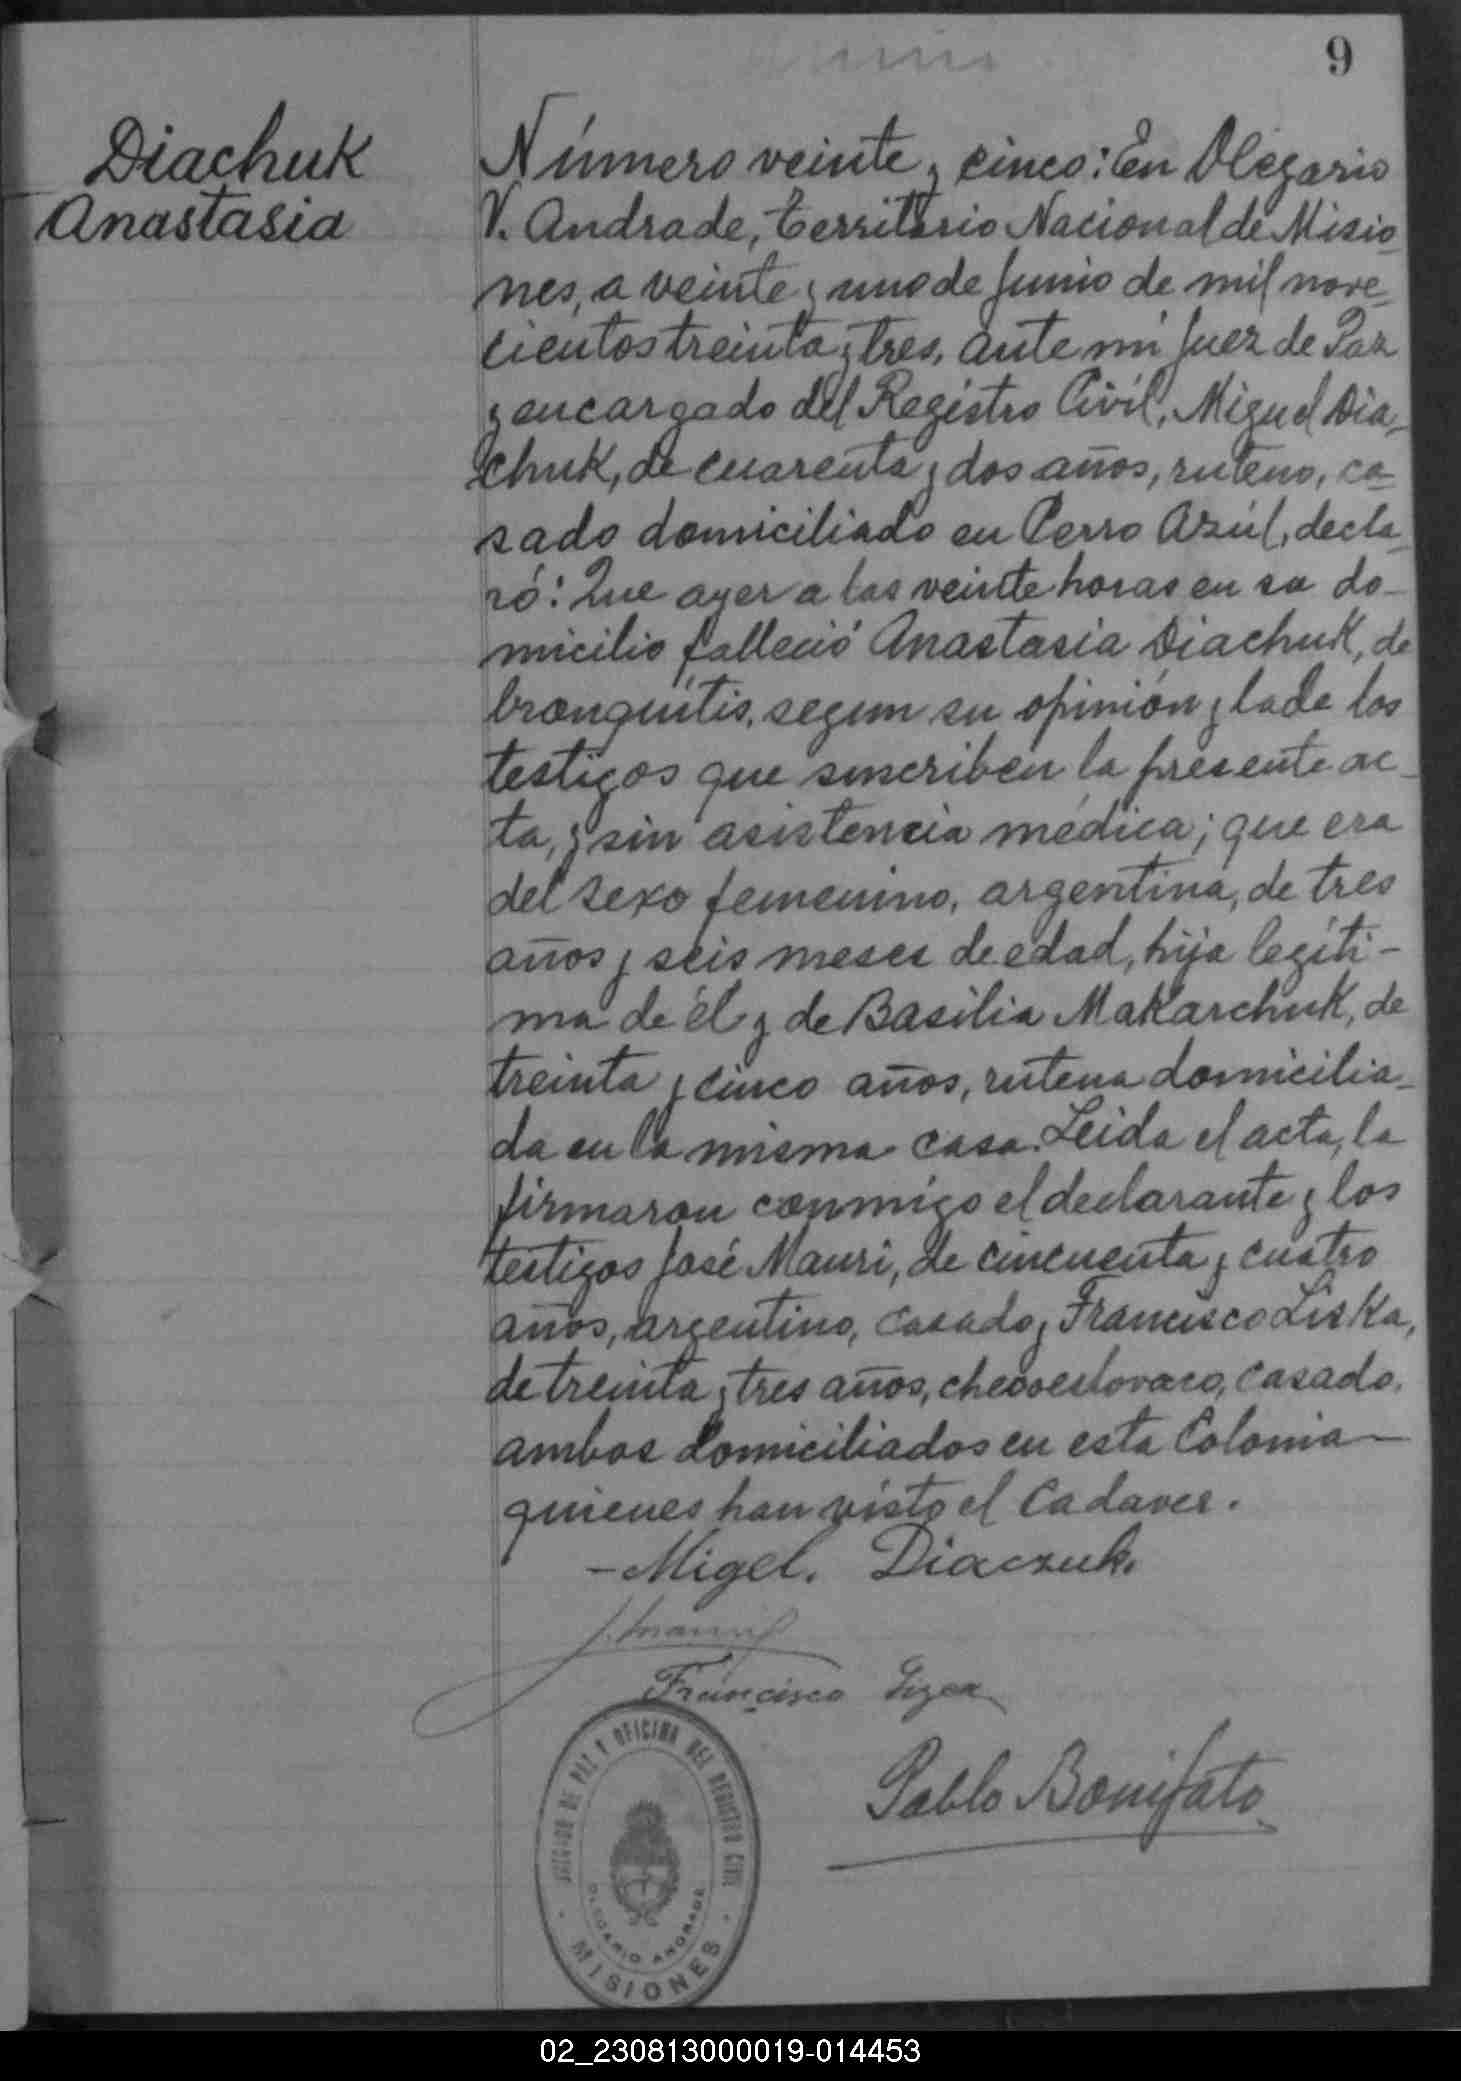 9
Diachuk
Anastasia
Número veinte y cinco: En Olegario
V. Andrade, Territorio Nacional de Misio-
nes, a veinte y uno de Junio de mil nove-
cientos treinta y tres, ante mi Juez de Paz
y encargado del Registro Civil, Miguel Dia-
chuk, de cuarenta y dos años, ruteno, ca-
sado domiciliado en Cerro Azúl, decla-
ró: Que ayer a las veinte horas en su do-
micilio falleció Anastasia Diachuk, de
bronquitis, segun su opinión y la de los
testigos que suscriben la presente ac-
ta, y sin asistencia médica; que era
del sexo femenino, argentina, de tres
años y seis meses de edad, hija legiti-
ma de él y de Basilia Makarchuk, de
treinta y cinco años, rutena domicilia-
da en la misma casa. Leida el acta, la
firmaron conmigo el declarante y los
testigos José Mauri, de cincuenta y cuatro
años, argentino, casado y Francisco Liska,
de treinta y tres años, checoeslovaco, casado,
ambos domiciliados en esta Colonia
quienes han visto el Cadaver.
Migel. Diaczuk.
J. Mauri
Francisco
Pablo Bonifato
JUZGADO DE PAZ Y OFICINA DEL REGISTRO CIVIL
OLEGARIO ANDRADE
MISIONES
02_230813000019-014453